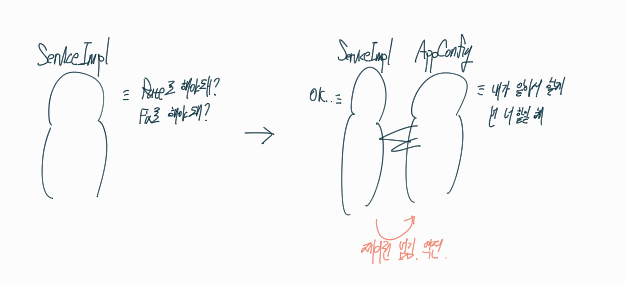 ServiceImpl
Rate로 해야돼?
Fix로 해야돼?
ServiceImpl
AppConfig
OK..
내가 알아서 할게
넌 너 할일 해
제어권 넘김. 역전.